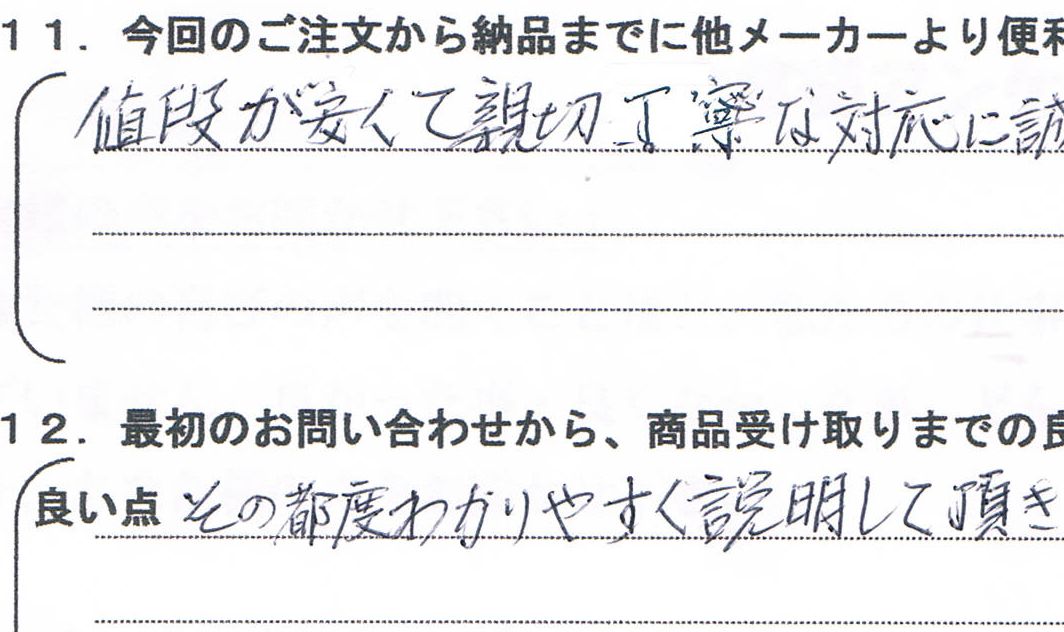 11．今回のご注文から納品までに他メーカーより便利
値段が安くて親切丁寧な対応に誠
12．最初のお問い合わせから、商品受け取りまでの良
良い点 その都度わかりやすく説明して頂き